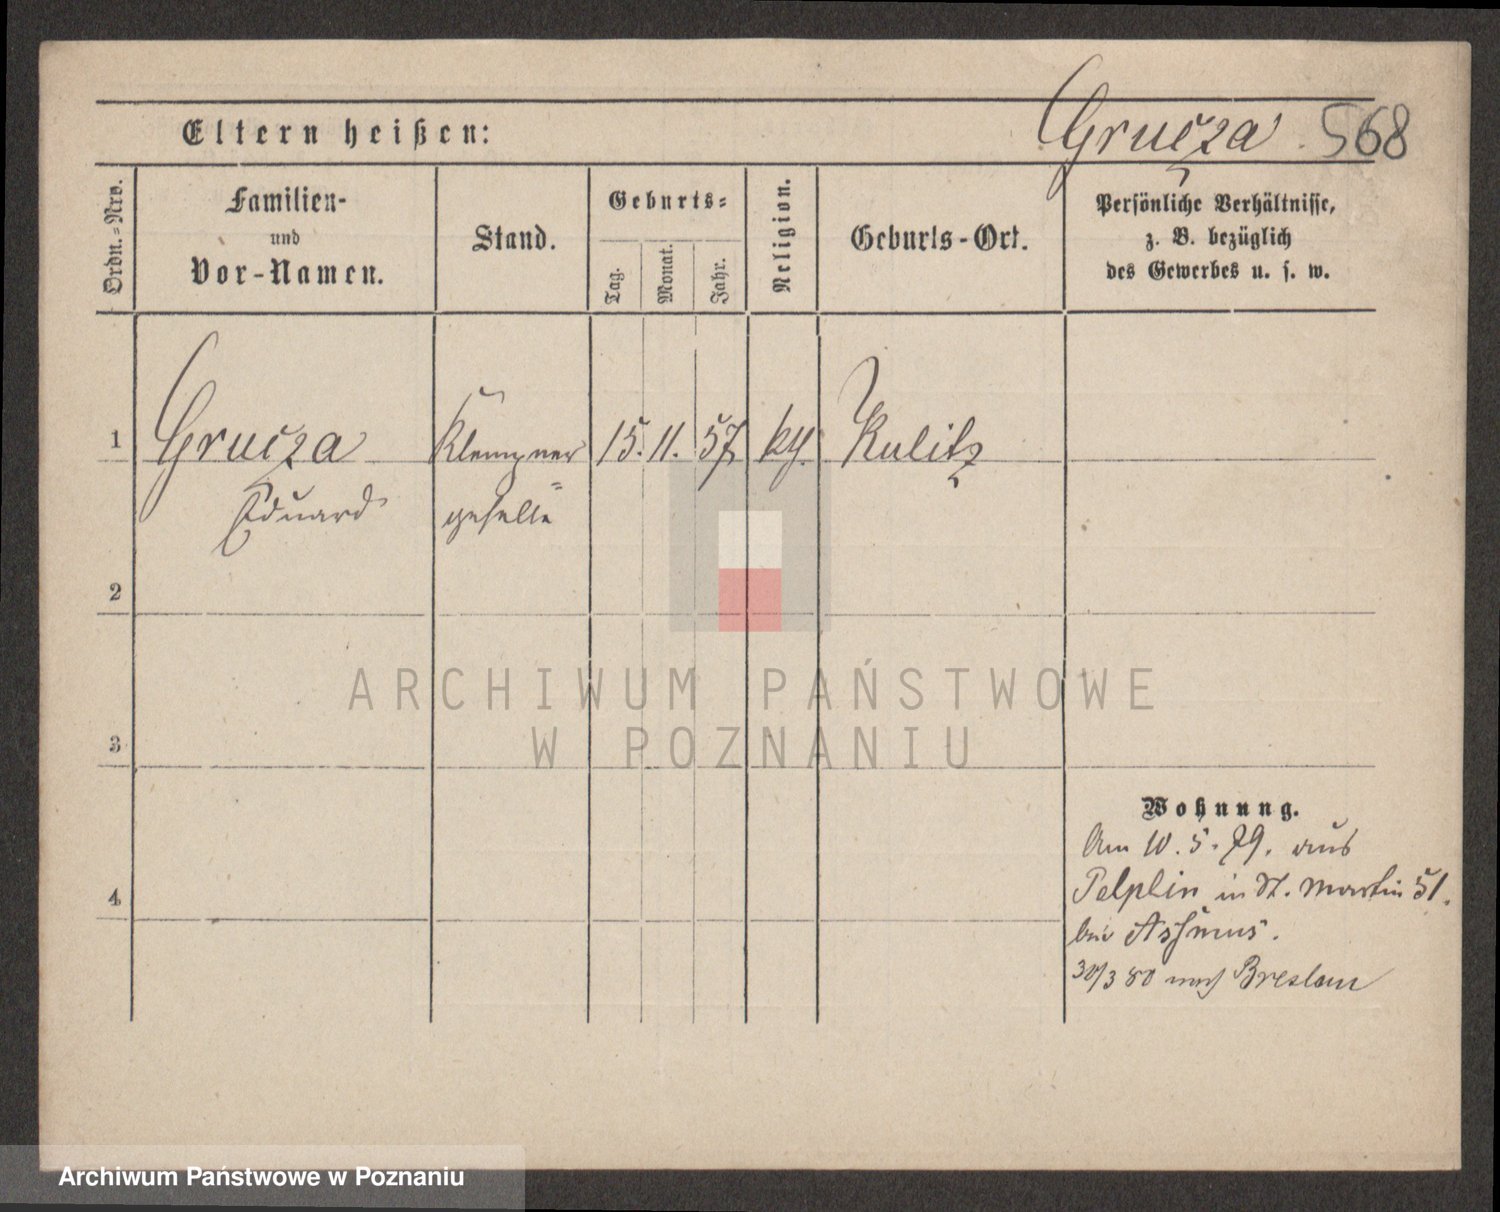 Eltern heißen:
Grucza 568
Ordn.-Nro.
Familien-
und
Vor-Namen.
Stand.
Geburts-
Tag.
Monat.
Jahr.
Religion.
Geburts-Ort.
Persönliche Verhältnisse,
z. B. bezüglich
des Gewerbes u. s. w.
1 Grucza Klempner 15. 11. 57 kth. Kulitz
Eduard geselle
2
3
4
Wohnung.
Am 10. 5. 79. aus
Pelplin in St. Martin 51.
bei Assmus.
30/3 80 nach Breslau
ARCHIWUM PAŃSTWOWE
W POZNANIU
Archiwum Państwowe w Poznaniu